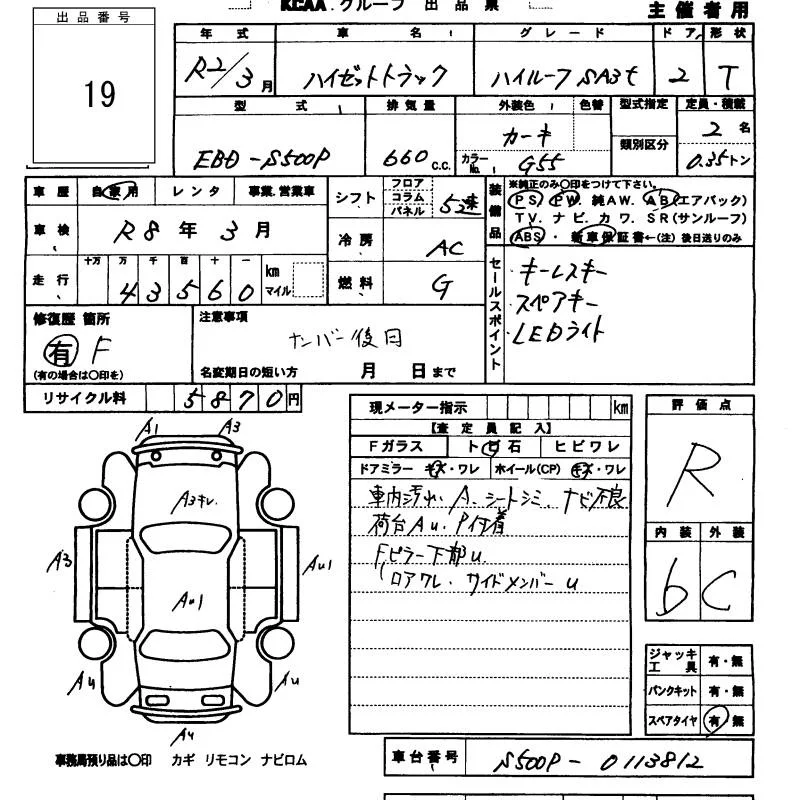 KCAA.グループ 出品票
主催者用
出品番号
19
年式 車名 グレード ドア 形状
R2/3月 ハイゼットトラック ハイルーフ SA3t 2 T
型式 排気量 外装色 色替 型式指定 定員・積載
EBD-S500P 660c.c. カーキ 類別区分 2名
カラーNo. G55 0.35トン
車歴 自家用 レンタ 事業.営業車
車検 R8年3月
走行 十万 万 千 百 十 一 km マイル
43560
シフト フロア コラム パネル 5速
冷房 AC
燃料 G
装備品
※純正のみ〇印をつけて下さい。
PS・PW・純AW・AB(エアバック)
TV・ナビ・カワ・SR(サンルーフ)
ABS・新車保証書←(注)後日送りのみ
セールスポイント
キーレスキー
スペアキー
LEDライト
修復歴 箇所
有 F
(有の場合は〇印を)
注意事項
ナンバー後日
名変期日の短い方 月 日まで
リサイクル料 5870円
現メーター指示 km
【査定員記入】
Fガラス トビ石 ヒビワレ
ドアミラー キズ・ワレ ホイール(CP) キズ・ワレ
車内汚れ、A、シートシミ ナビ不良
荷台Au. P付着
Fピラー下部u.
ロアワレ. サイドメンバーu
評価点
R
内装 外装
b C
A1 A3
A3キレ.
A3
Au1
Au1
Au
Au
A4
ジャッキ工具 有・無
パンクキット 有・無
スペアタイヤ 有・無
事務局預り品は〇印 カギ リモコン ナビロム
車台番号 S500P-0113812